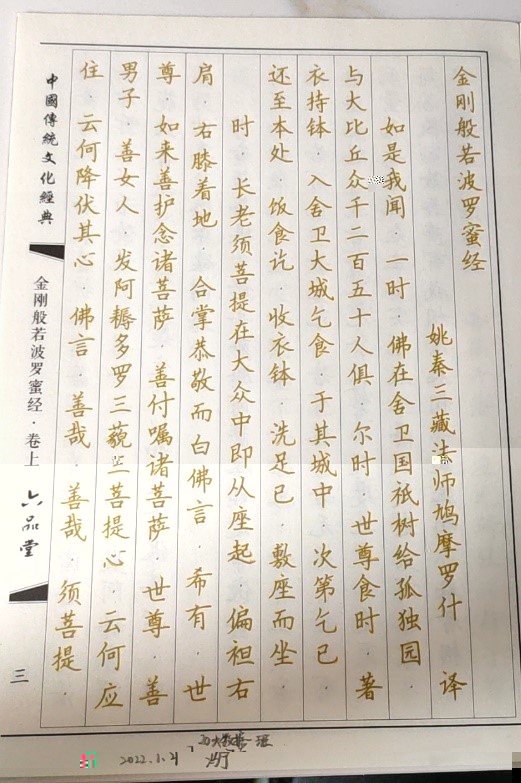 金刚般若波罗蜜经
姚秦三藏法师鸠摩罗什 译
如是我闻·一时·佛在舍卫国祇树给孤独园·
与大比丘众千二百五十人俱·尔时·世尊食时·著
衣持钵·入舍卫大城乞食·于其城中·次第乞已·
还至本处·饭食讫·收衣钵·洗足已·敷座而坐·
时·长老须菩提在大众中即从座起·偏袒右
肩·右膝着地·合掌恭敬而白佛言·希有·世
尊·如来善护念诸菩萨·善付嘱诸菩萨·世尊·善
男子·善女人·发阿耨多罗三藐三菩提心·云何应
住·云何降伏其心·佛言·善哉·善哉·须菩提·
中國傳統文化經典
金刚般若波罗蜜经·卷上
六品堂
三
2022.1.21